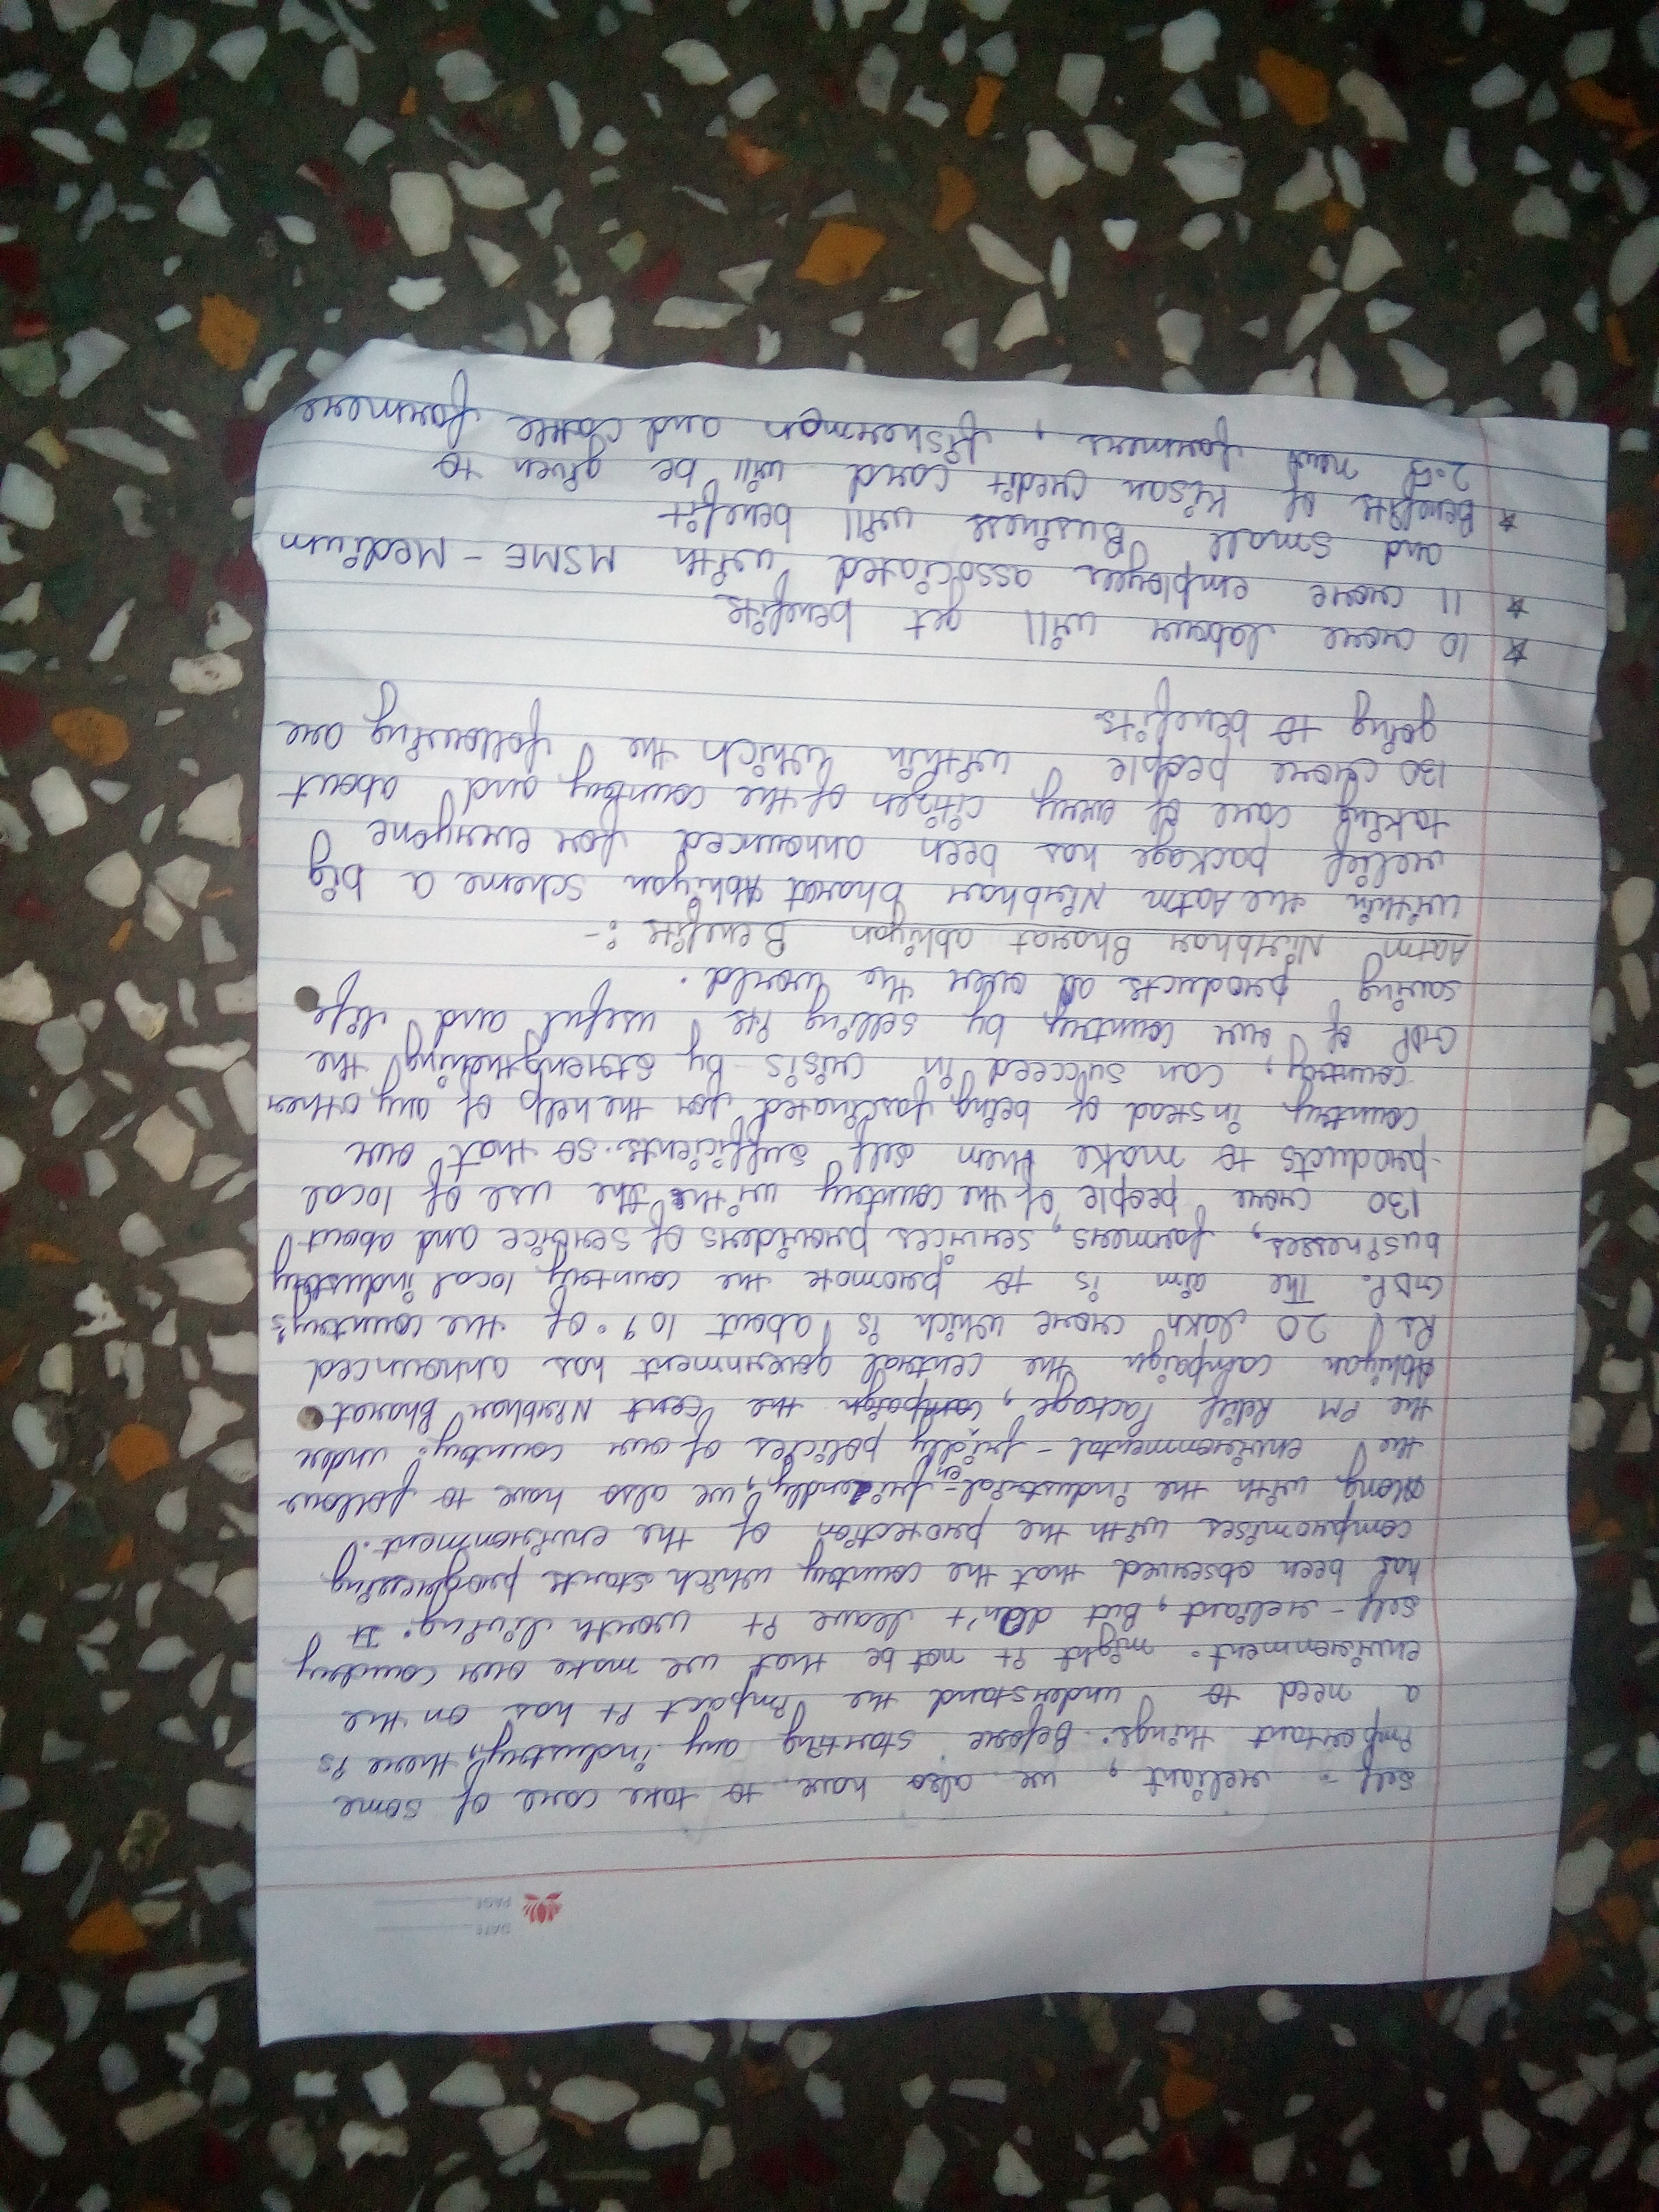 DATE
PAGE
self - reliant, we also have to take care of some
important things. Before starting any industry, there is
a need to understand the impact it has on the
environment. might it not be that we make our country
self - reliant, But don't leave it worth living. It
has been observed that the country which starts progressing
compromises with the protection of the environment.
Along with the industrial - friendly, we also have to follow
the environmental - friedly policies of our country. under
the PM Relief Package, campaign the Nirbhar Bharat
Abhiyan campaign the central government has announced
Rs 20 lakh crore which is about 10% of the country's
GDP. The aim is to promote the country local industry
businesses, farmers, services providers of service and about
130 crore people of the country with the use of local
products to make them self sufficients. so that our
country instead of being fascinated for the help of any other
country, can succeed in crisis by strengthening the
GDP of our country by selling its useful and life
saving products all over the world.
Aatm Nirbhar Bharat abhiyan Benefits :-
within the Aatm Nirbhar bharat Abhiyan scheme a big
relief package has been announced for everyone
taking care of every citizen of the country and about
130 crore people within which the following are
going to benefits
☆ 10 crore labour will get benefits
☆ 11 crore employees associated with MSME - Medium
and small Business will benefit
☆ Benefits of Kisan credit card will be given to
2.5 new farmers, fishermen and cattle farmers